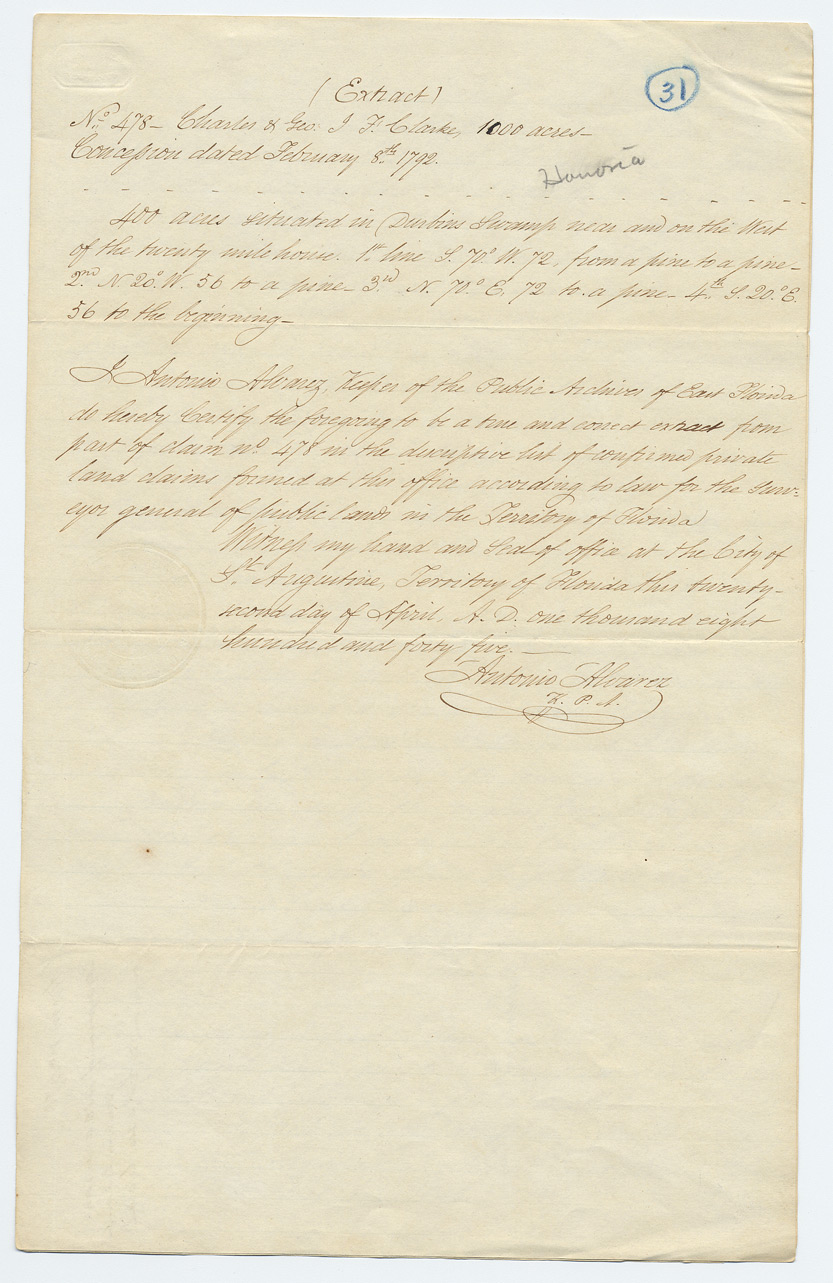 (Extract)
31
No. 478 - Charles & Geo: J. F. Clarke, 1000 acres -
Concession dated February 8th 1792.
Honoria
400 acres situated in Durbins Swamp near and on the West
of the twenty mile house. 1st line S. 70° W. 72, from a pine to a pine -
2nd N. 20° W. 56 to a pine - 3rd N. 70° E. 72 to a pine - 4th S. 20° E.
56 to the beginning -
I Antonio Alvarez, Keeper of the Public Archives of East Florida
do hereby Certify the foregoing to be a true and correct extract from
part of claim no. 478 in the discriptive list of confirmed private
land claims formed at this office according to law for the Surv-
eyor general of public lands in the Territory of Florida
Witness my hand and Seal of office at the City of
St Augustine, Territory of Florida this twenty-
second day of April, A. D. one thousand eight
hundred and forty five. -
Antonio Alvarez
K. P. A.